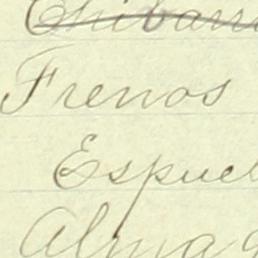 Frenos
Espuel
Alma